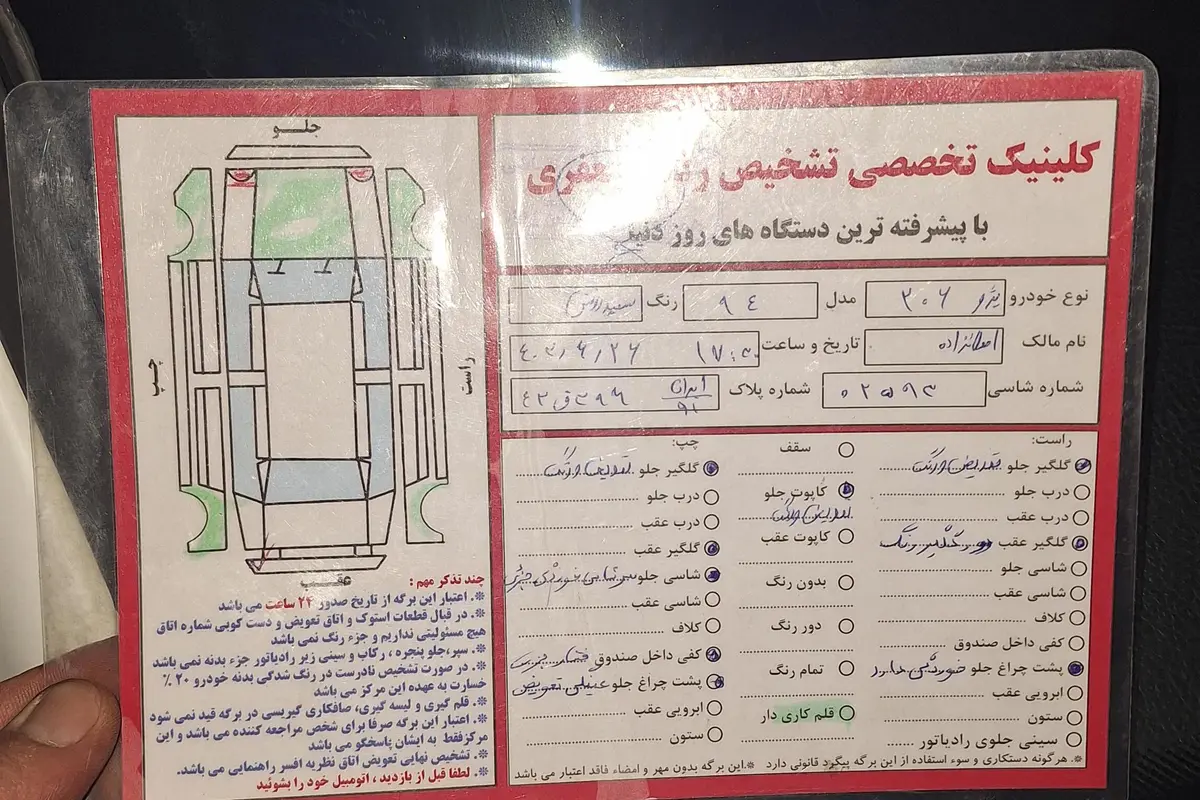 کلینیک تخصصی تشخیص
با پیشرفته ترین دستگاه های روز دنیا
نوع خودرو پژو ۲۰۶ مدل ۹٤ رنگ سفید روغنی
نام مالک تاریخ و ساعت ۱۷:۳۰ ٤۰۳/۶/۲۶
شماره شاسی ۰۲۵۹۳ شماره پلاک ایران ۹۱
راست:
گلگیر جلو تعویض و رنگ
درب جلو
درب عقب
گلگیر عقب دور گلگیر رنگ
شاسی جلو
شاسی عقب
کلاف
کفی داخل صندوق
پشت چراغ جلو خوردگی دارد
ابرویی عقب
ستون
سینی جلوی رادیاتور
سقف
کاپوت جلو
تعویض و رنگ
کاپوت عقب
بدون رنگ
دور رنگ
تمام رنگ
قلم کاری دار
چپ:
گلگیر جلو تعویض و رنگ
درب جلو
درب عقب
گلگیر عقب
شاسی جلو سرشاسی خوردگی جزئی
شاسی عقب
کلاف
کفی داخل صندوق
پشت چراغ جلو سینی تعویض
ابرویی عقب
ستون
*. هرگونه دستکاری و سوء استفاده از این برگه پیگرد قانونی دارد *.این برگه بدون مهر و امضاء فاقد اعتبار می باشد
جلـو
چپ
راست
عقـب
چند تذکر مهم :
*. اعتبار این برگه از تاریخ صدور ۲۴ ساعت می باشد
*. در قبال قطعات استوک و اتاق تعویض و دست کوبی شماره اتاق
هیچ مسئولیتی نداریم و جزء رنگ نمی باشد
*. سپر،جلو پنجره ، رکاب و سینی زیر رادیاتور جزء بدنه نمی باشد
*. در صورت تشخیص نادرست در رنگ شدگی بدنه خودرو ۲۰ ٪
خسارت به عهده این مرکز می باشد
*. قلم گیری و لیسه گیری، صافکاری گیربسی در برگه قید نمی شود
*. اعتبار این برگه صرفا برای شخص مراجعه کننده می باشد و این
مرکزفقط به ایشان پاسخگو می باشد
*. تشخیص نهایی تعویض اتاق نظریه افسر راهنمایی می باشد.
*. لطفا قبل از بازدید ، اتومبیل خود را بشوئید